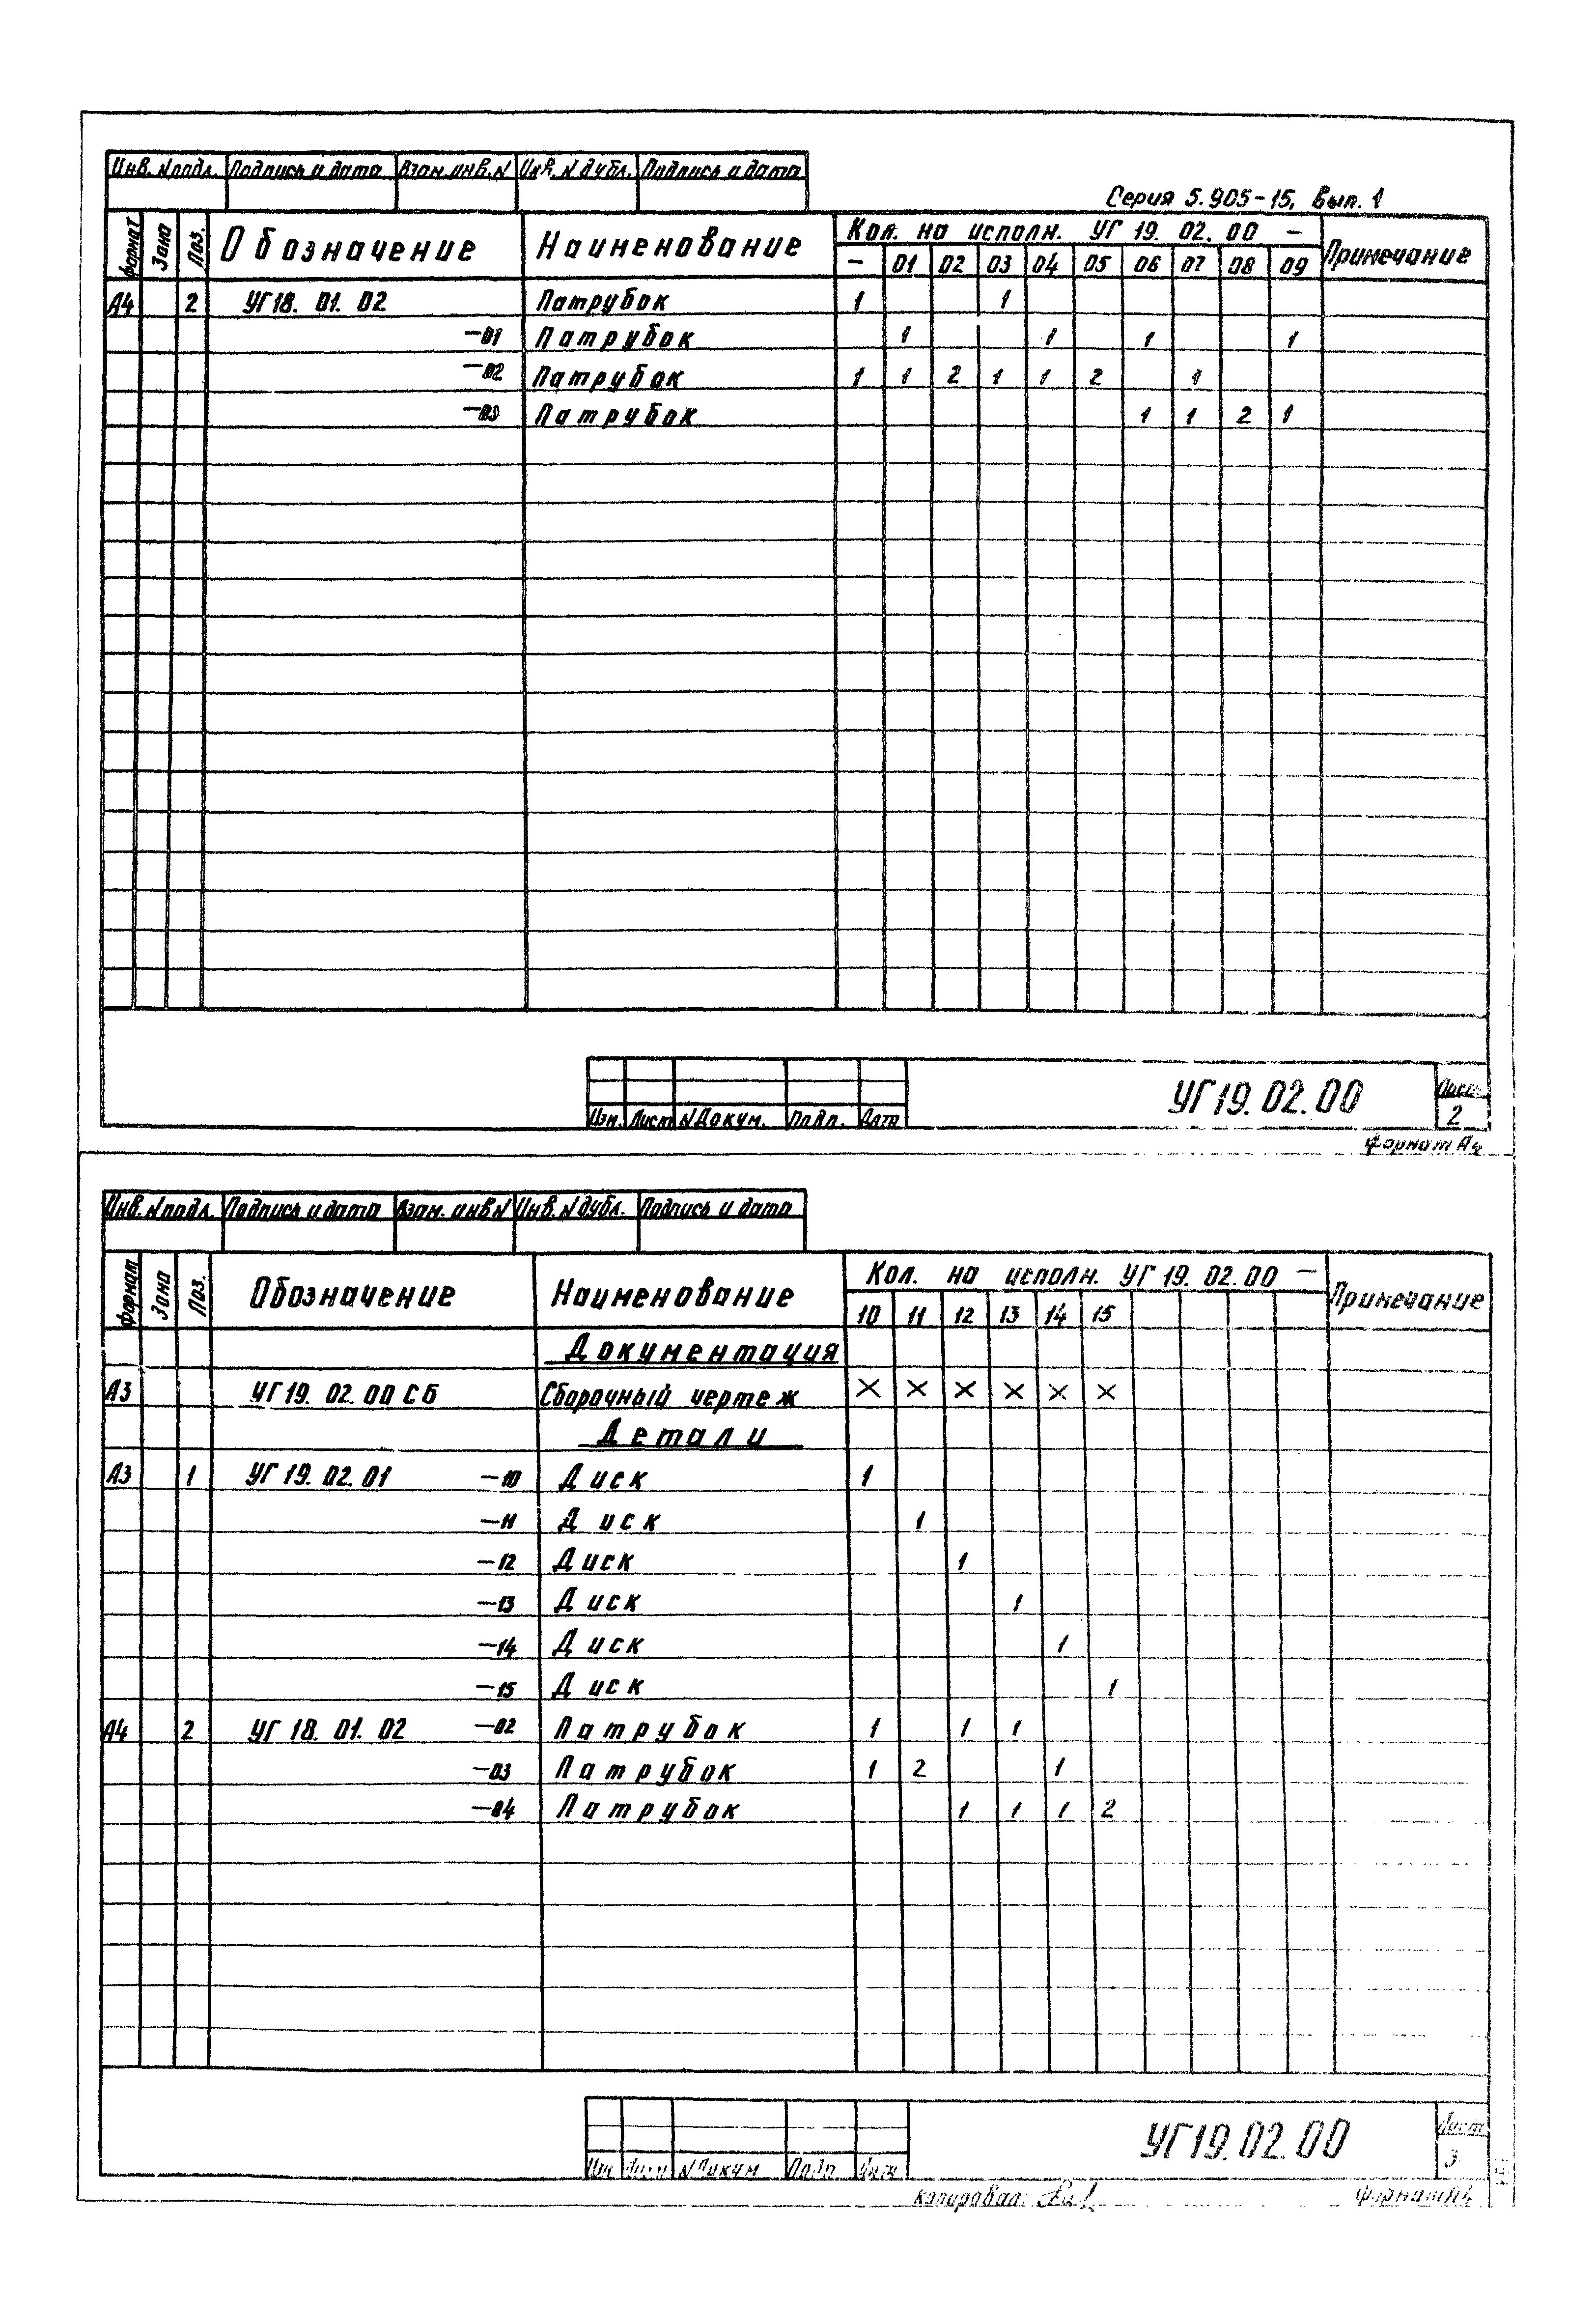 Инв. N подл. Подпись и дата Взам. инв. N Инв. N дубл. Подпись и дата
Серия 5.905-15, вып. 1
Формат Зона Поз. Обозначение Наименование Кол. на исполн. УГ 19. 02. 00 - Примечание
- 01 02 03 04 05 06 07 08 09
А4 2 УГ18. 01. 02 Патрубок 1 1
-01 Патрубок 1 1 1 1
-02 Патрубок 1 1 2 1 1 2 1
-03 Патрубок 1 1 2 1
Изм. Лист N Докум. Подп. Дата
УГ19. 02. 00
Лист
2
Формат А4
Инв. N подл. Подпись и дата Взам. инв N Инв. N дубл. Подпись и дата
Формат Зона Поз. Обозначение Наименование Кол. на исполн. УГ 19. 02. 00 - Примечание
10 11 12 13 14 15
Документация
А3 УГ19. 02. 00 СБ Сборочный чертеж × × × × × ×
Детали
А3 1 УГ 19. 02. 01 -10 Диск 1
-11 Диск 1
-12 Диск 1
-13 Диск 1
-14 Диск 1
-15 Диск 1
А4 2 УГ 18. 01. 02 -02 Патрубок 1 1 1
-03 Патрубок 1 2 1
-04 Патрубок 1 1 1 2
Изм Лист N Докум Подп Дата
УГ19. 02. 00
Лист
3
Копировал:
Формат А4